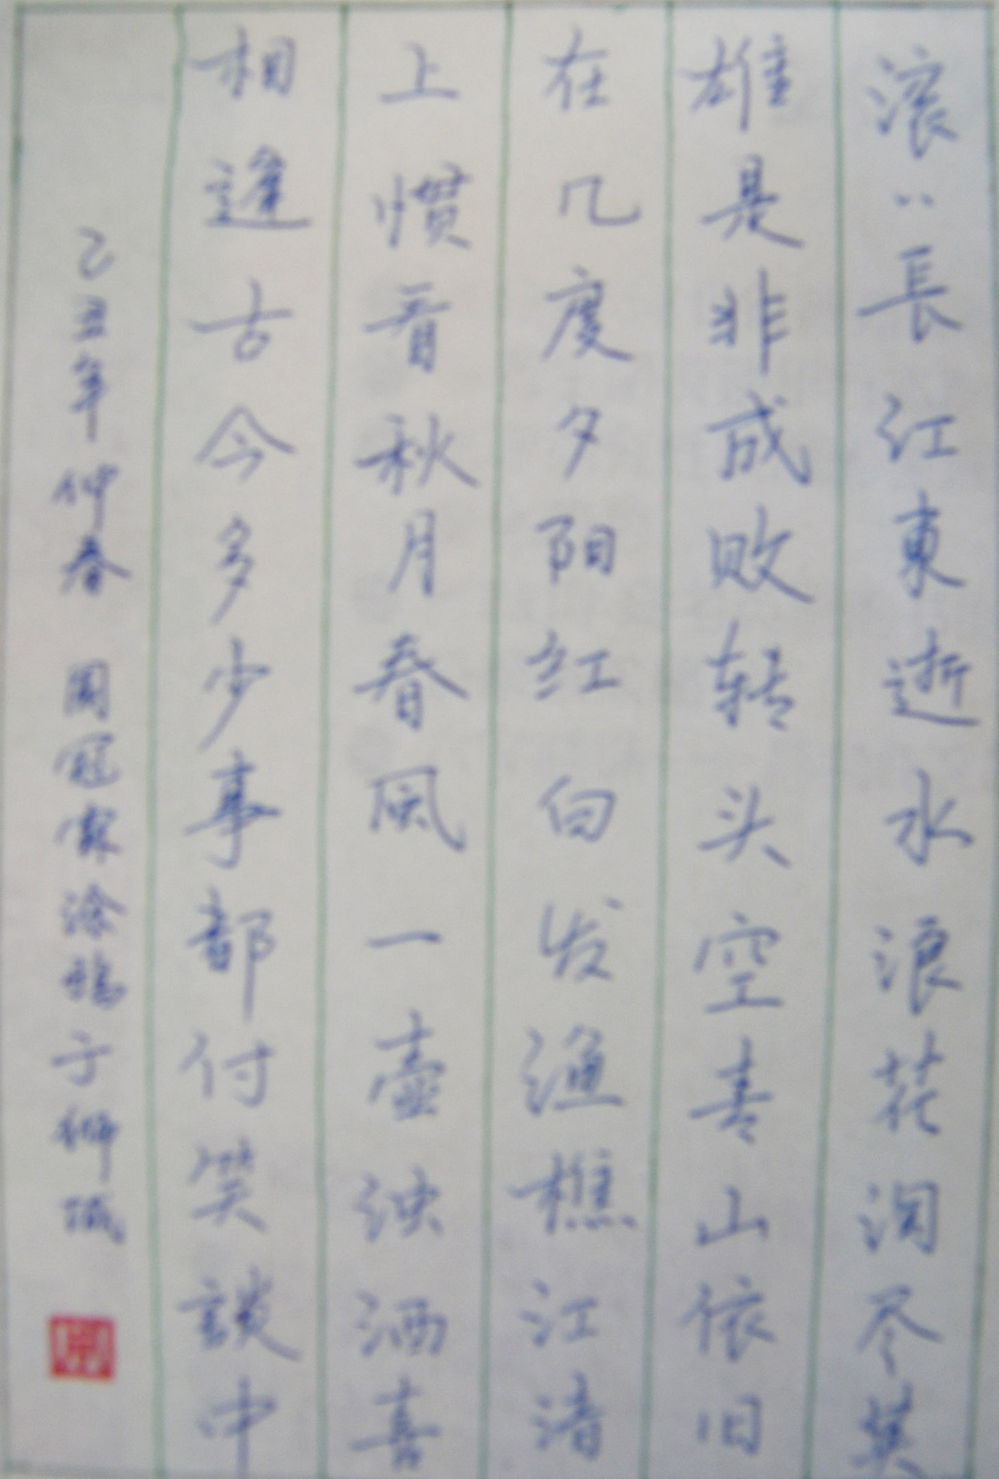 滚〻長江東逝水浪花淘尽英
雄是非成败转头空青山依旧
在几度夕阳红白发渔樵江渚
上惯看秋月春風一壶浊酒喜
相逢古今多少事都付笑談中
乙丑年仲春 周冠霖涂鸦于